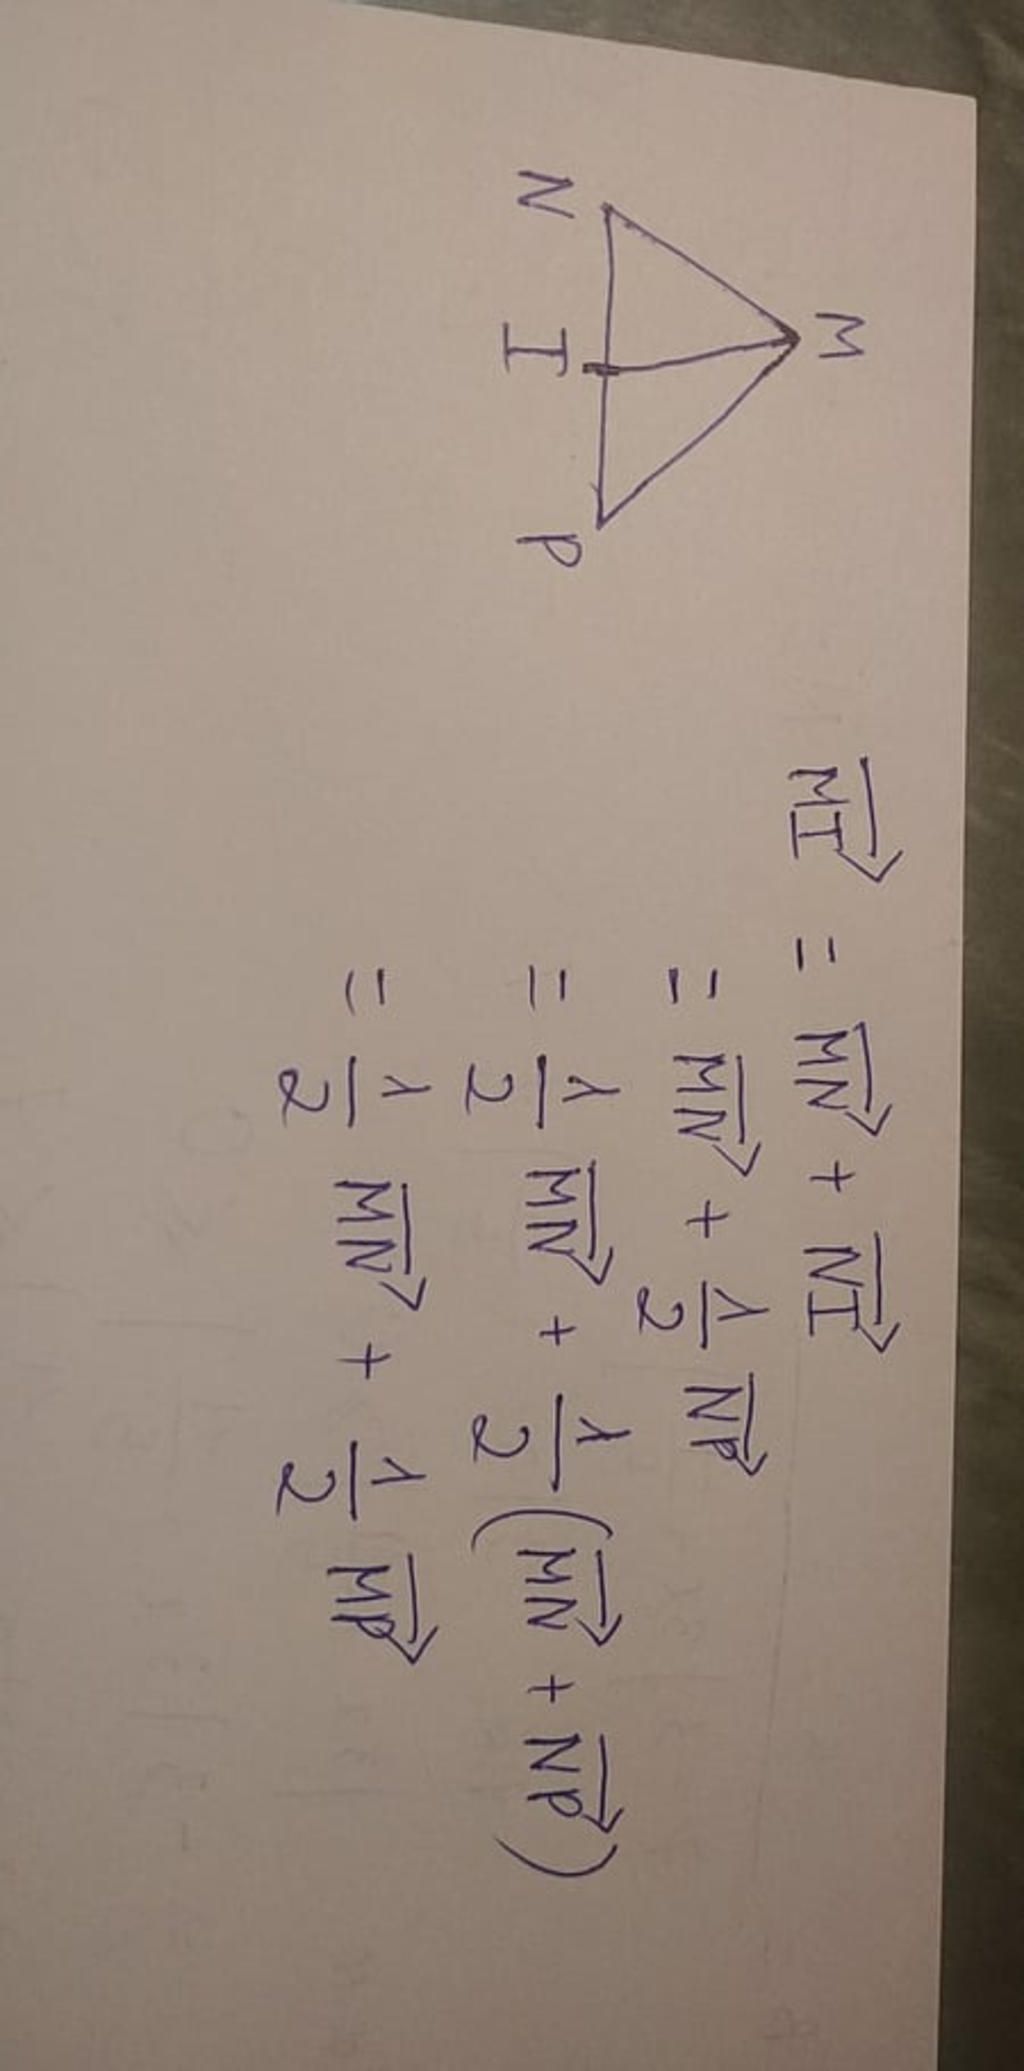 M
N I P
MI→ = MN→ + NI→
= MN→ + 1/2 NP→
= 1/2 MN→ + 1/2 (MN→ + NP→)
= 1/2 MN→ + 1/2 MP→